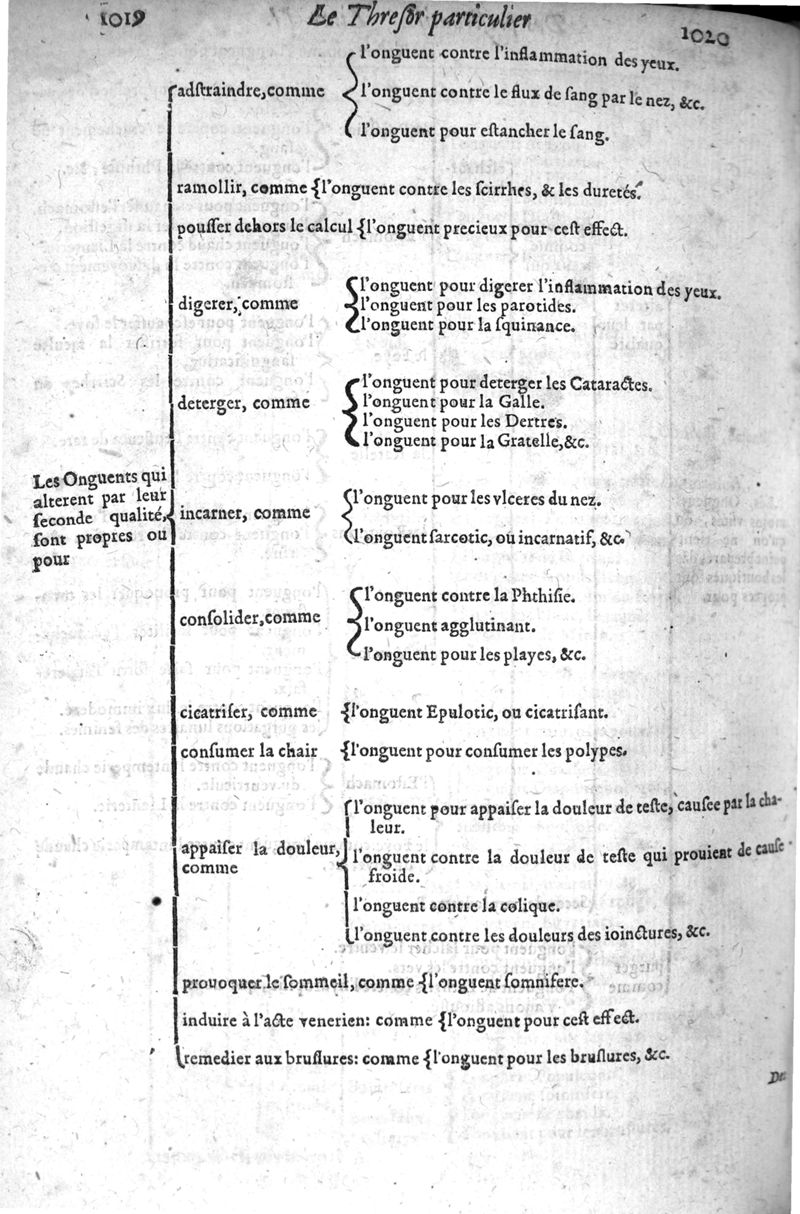 1019 Le Thresor particulier 1020
Les Onguents qui
alterent par leur
ſeconde qualité,
ſont propres ou
pour
adſtraindre, comme
l'onguent contre l'inflammation des yeux.
l'onguent contre le flux de ſang par le nez, &c.
l'onguent pour eſtancher le ſang.
ramollir, comme {l'onguent contre les ſcirrhes, & les duretés.
pouſſer dehors le calcul {l'onguent precieux pour ceſt effect.
digerer, comme
l'onguent pour digerer l'inflammation des yeux.
l'onguent pour les parotides.
l'onguent pour la ſquinance.
deterger, comme
l'onguent pour deterger les Cataractes.
l'onguent pour la Galle.
l'onguent pour les Dertres.
l'onguent pour la Gratelle, &c.
incarner, comme
l'onguent pour les vlceres du nez.
l'onguent ſarcotic, ou incarnatif, &c.
conſolider, comme
l'onguent contre la Phthiſie.
l'onguent agglutinant.
l'onguent pour les playes, &c.
cicatriſer, comme {l'onguent Epulotic, ou cicatriſant.
conſumer la chair {l'onguent pour conſumer les polypes.
appaiſer la douleur,
comme
l'onguent pour appaiſer la douleur de teſte, cauſée par la cha-
leur.
l'onguent contre la douleur de teſte qui prouient de cauſe
froide.
l'onguent contre la colique.
l'onguent contre les douleurs des ioinctures, &c.
prouoquer le ſommeil, comme {l'onguent ſomnifere.
induire à l'acte venerien: comme {l'onguent pour ceſt effect.
remedier aux bruſlures: comme {l'onguent pour les bruſlures, &c.